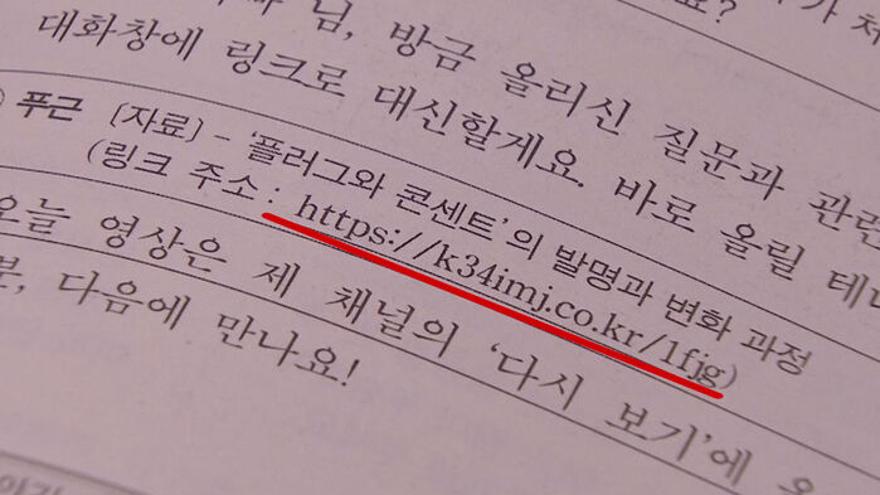 님, 방금 올리신 질문과 관련
대화창에 링크로 대신할게요. 바로 올릴 테니
푸근 [자료] - '플러그와 콘센트'의 발명과 변화 과정
(링크 주소: https://k34imj.co.kr/1fjg)
오늘 영상은 제 채널의 '다시 보기'에
분, 다음에 만나요!